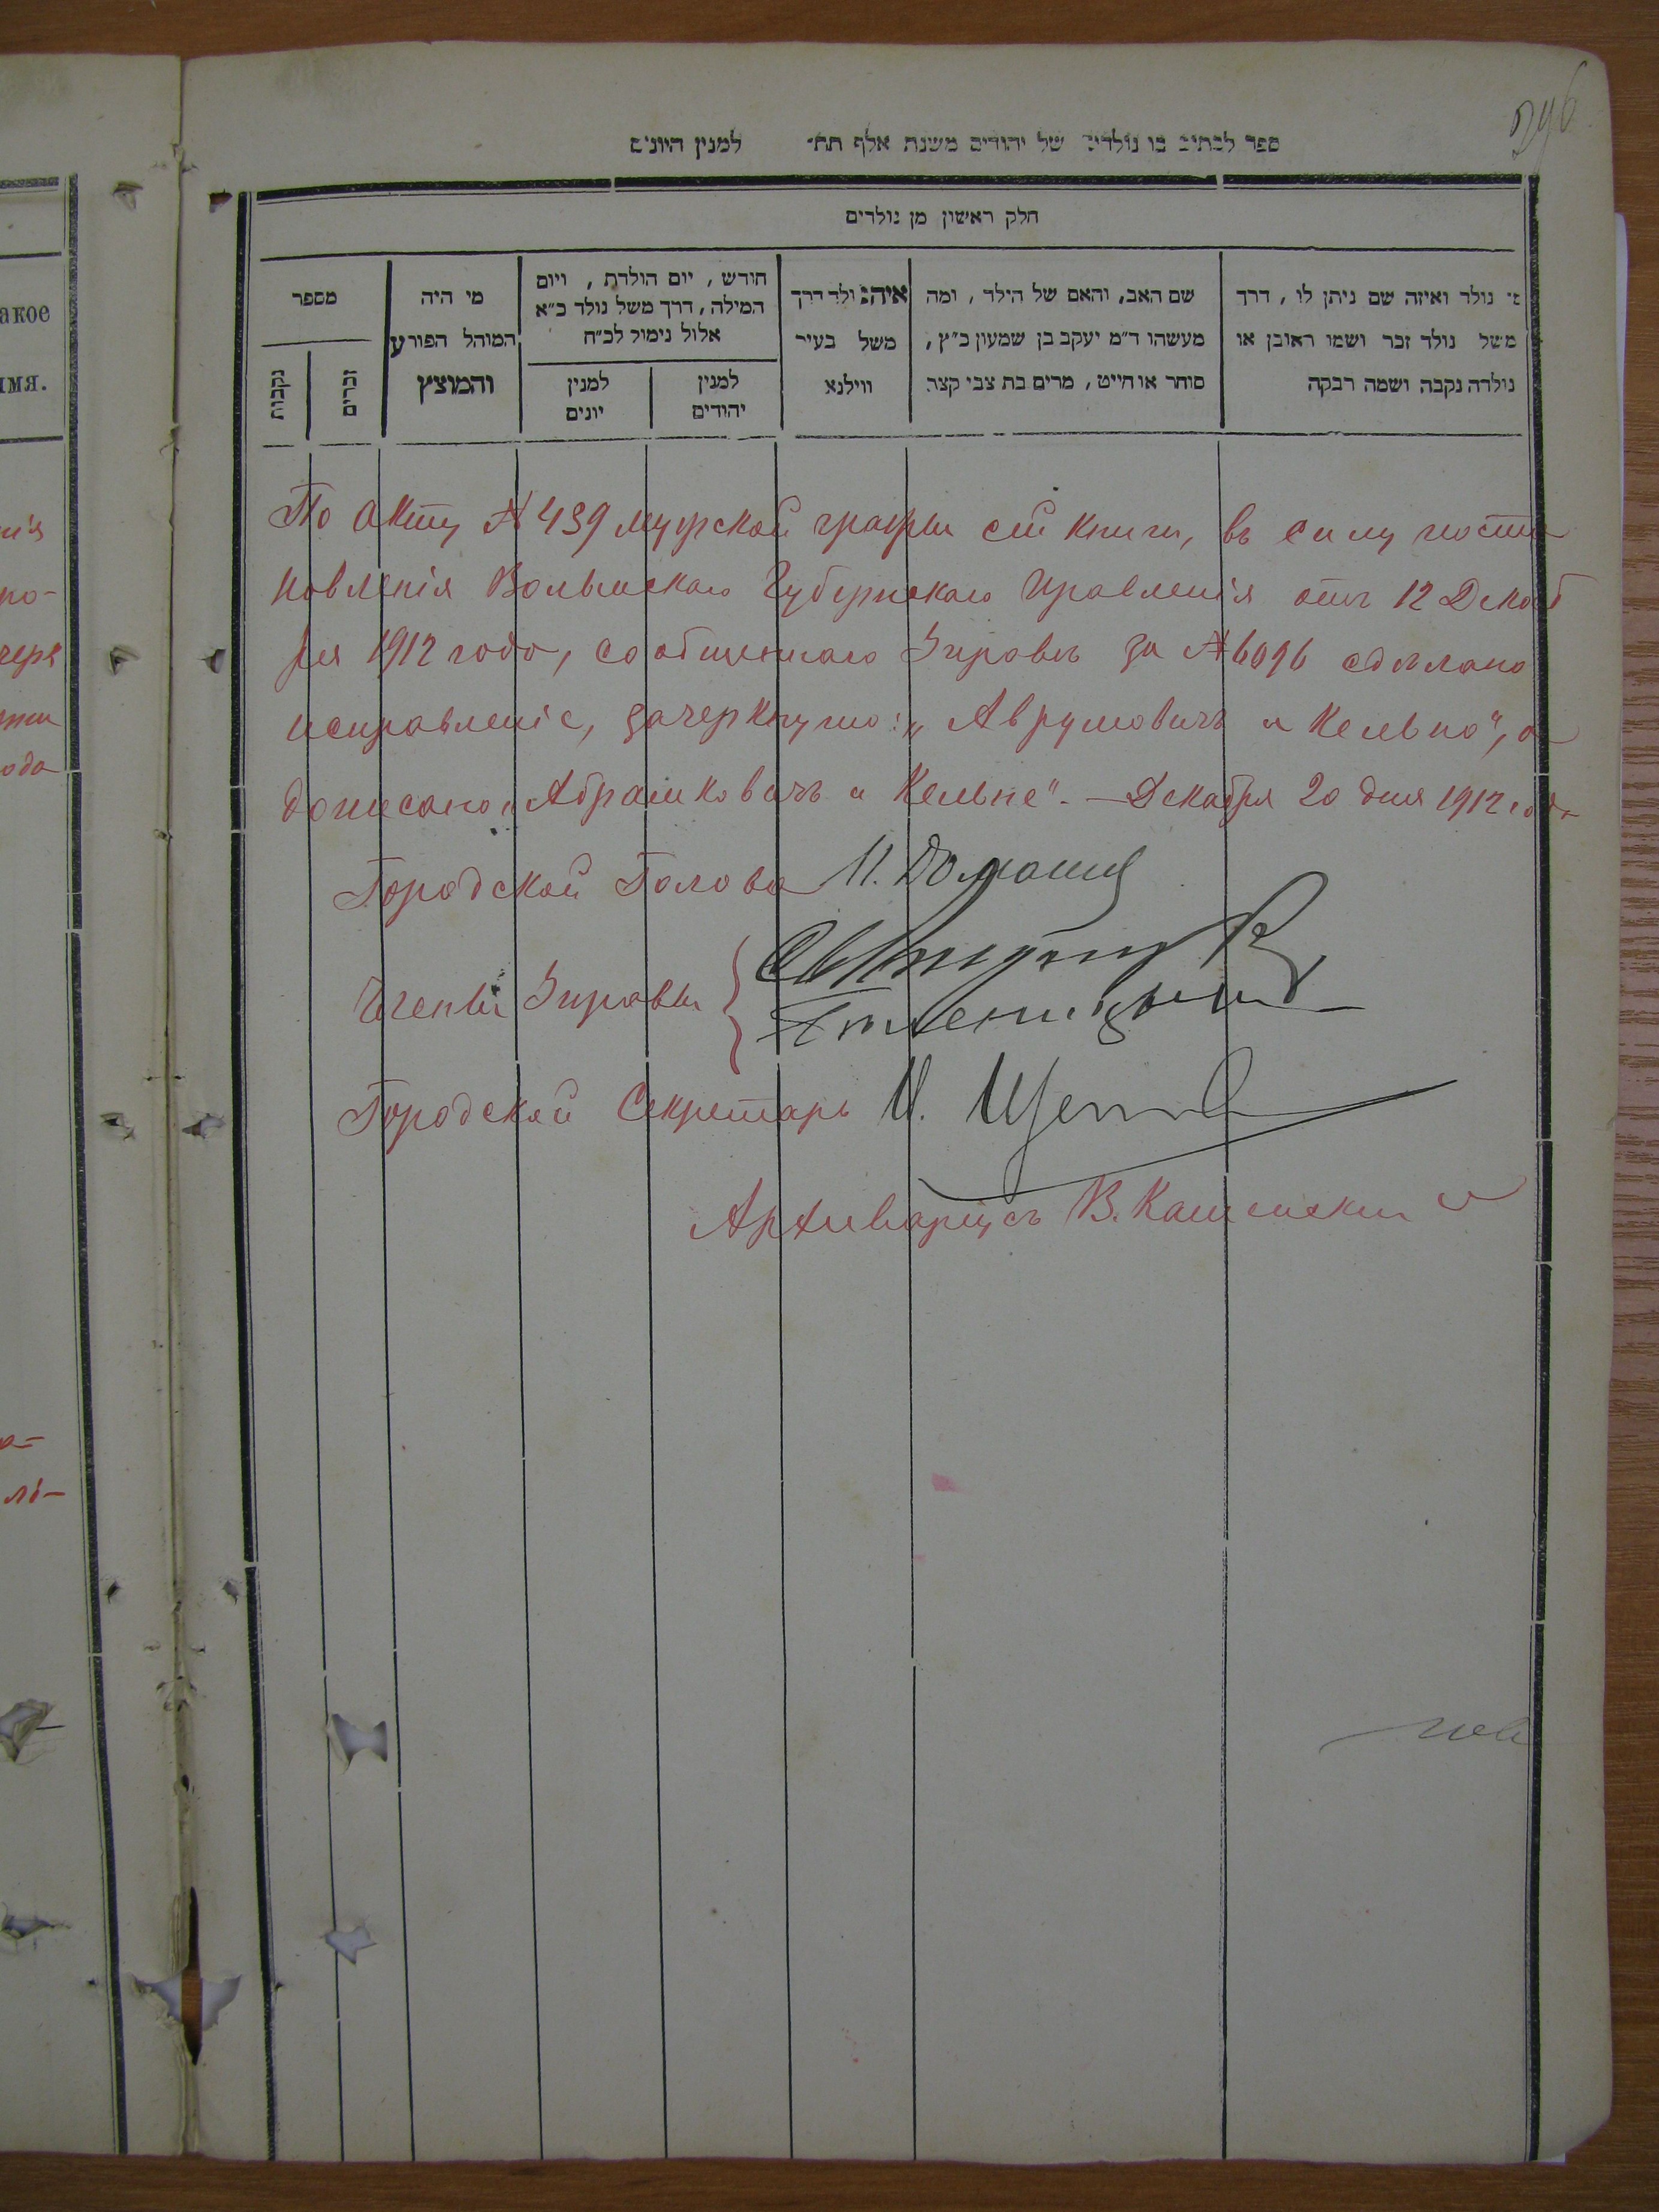 ספר לכתוב בו נולדים של יהודים משנת אלף תת׳ למנין היונים
חלק ראשון מן נולדים
מי נולד ואיזה שם ניתן לו, דרך
משל נולד זכר ושמו ראובן או
נולדה נקבה ושמה רבקה
שם האב, והאם של הילד, ומה
מעשהו ד״מ יעקב בן שמעון כ״ץ,
סוחר או חייט, מרים בת צבי קצב
איה נולד דרך
משל בעיר
ווילנא
חודש, יום הולדת, ויום
המילה, דרך משל נולד כ״א
אלול נימול לכ״ח
למנין
יהודים
למנין
יונים
מי היה
המוהל הפורע
והמוצץ
מספר
זכרים
נקבות
По акту № 439 мужской графы сей книги, въ силу поста
новленія Волынскаго Губернскаго Правленія отъ 12 Декаб
ря 1912 года, сообщеннаго Управѣ за № 6096 сдѣлано
исправленіе, зачеркнуто: „Аврумовичъ и Кельно", а
дописано „Абрамковичъ и Кельне". — Декабря 20 дня 1912 года
Городской Голова
Члены Управы
Городской Секретарь
Архиваріусъ В.
акое
имя.